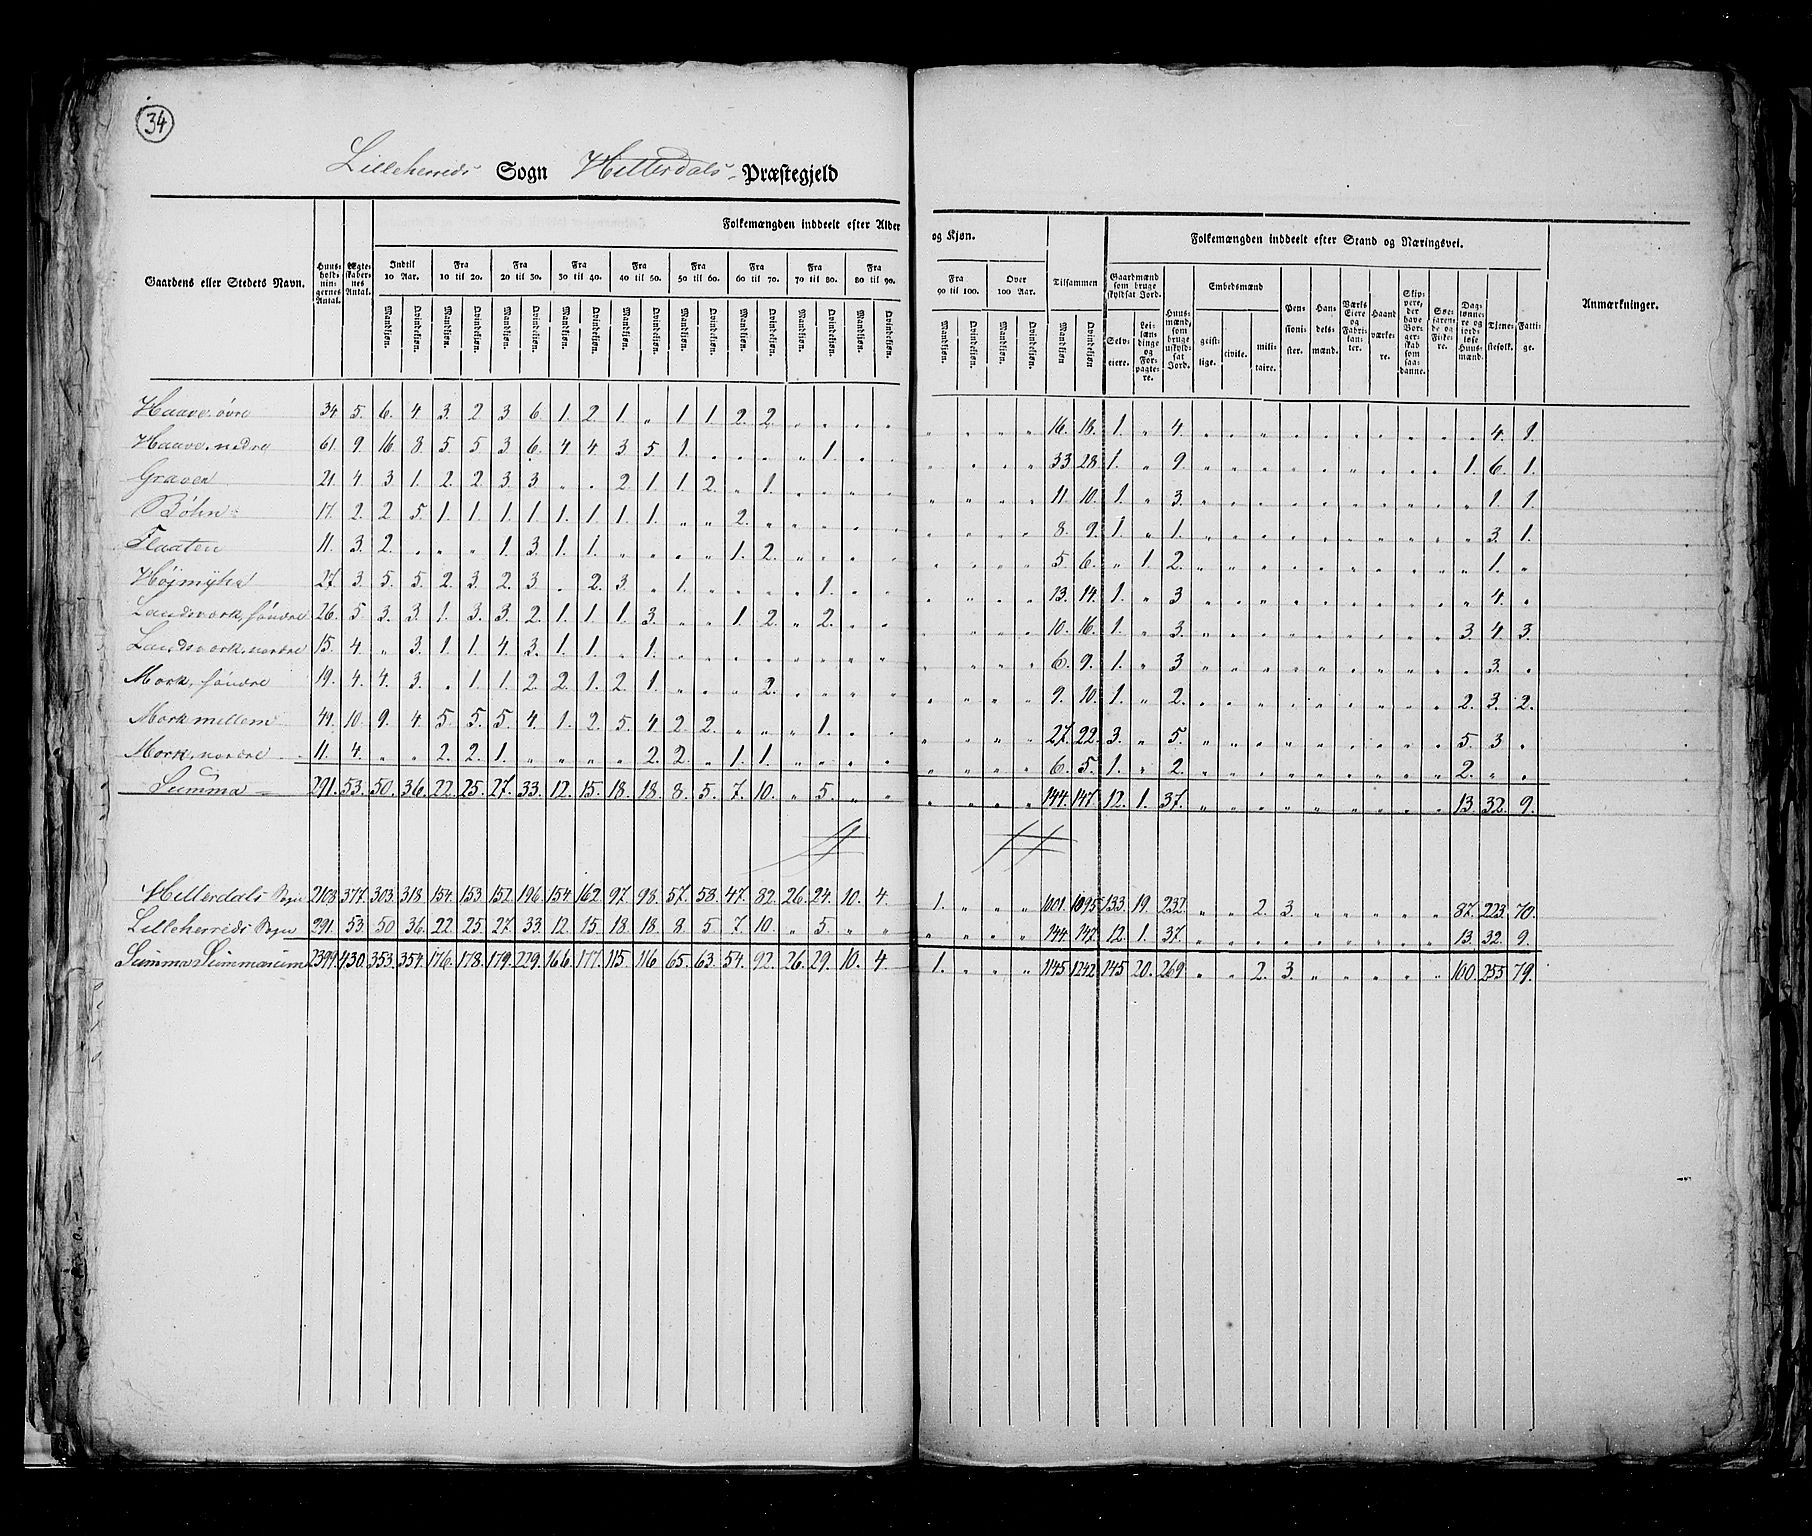 34
Lilleherreds Sogn Hitterdals Præstegjeld
Gaardens eller Stedets Navn. Huus-holdnin-gernes Antal. Ægte-skaber-nes Antal. Folkemængden inddeelt efter Alder og Kjøn. Tilsammen Folkemængden inddeelt efter Stand og Næringsvei. Anmærkninger.
Indtil 10 Aar. Fra 10 til 20. Fra 20 til 30. Fra 30 til 40. Fra 40 til 50. Fra 50 til 60. Fra 60 til 70. Fra 70 til 80. Fra 80 til 90. Fra 90 til 100. Over 100 Aar.
Gaardmænd som bruge skyldsat Jord. Selv-eiere. Lei-lændinge og For-pagtere. Huus-mænd, som bruge uskyld-sat Jord. Embedsmænd geist-lige. civile. mili-taire. Pen-sioni-ster. Han-dels-mænd. Værks Eiere og Fabri-kan-ter. Haand værke-re. Skip-pere, der have Bor-ger-skab som saa-danne. Søe-farende og Fiskere. Dag-lønne-re og jord-løse Huus-mænd. Tjene-stefolk. Fatti-ge.
Mandkjøn. Qvindekjøn. Mandkjøn. Qvindekjøn. Mandkjøn. Qvindekjøn. Mandkjøn. Qvindekjøn. Mandkjøn. Qvindekjøn. Mandkjøn. Qvindekjøn. Mandkjøn. Qvindekjøn. Mandkjøn. Qvindekjøn. Mandkjøn. Qvindekjøn. Mandkjøn. Qvindekjøn. Mandkjøn. Qvindekjøn. Mandkjøn Qvindekjøn
Haave, øvre 34 5. 6. 4. 3. 2. 3. 6. 1. 2. 1. „ 1. 1. 2. 2. „ „ „ „ „ „ „ „ 16. 18. 1. „ 4. „ „ „ „ „ „ „ „ „ „ 4. 1.
Haave, nedre 61. 9. 16. 8. 5. 5. 3. 6. 4. 4. 3. 5. 1. „ „ „ „ 1. „ „ „ „ „ „ 33 28. 1. „ 9. „ „ „ „ „ „ „ „ „ 1. 6. 1.
Graven 21. 4. 3. 1. 2. 2. 3. 3. „ „ 2. 1. 1. 2. „ 1. „ „ „ „ „ „ „ „ 11. 10. 1. „ 3. „ „ „ „ „ „ „ „ „ „ 1. 1.
Böhn 17. 2. 2. 5. 1. 1. 1. 1. 1. 1. 1. 1. „ „ 2. „ „ „ „ „ „ „ „ „ 8. 9. 1. „ 1. „ „ „ „ „ „ „ „ „ „ 3. 1.
Flaaten 11. 3. 2. „ „ „ 1. 3. 1. 1. „ „ „ „ 1. 2. „ „ „ „ „ „ „ „ 5. 6. „ 1. 2. „ „ „ „ „ „ „ „ „ „ 1. „
Højmyhr 27. 3. 5. 5. 2. 3. 2. 3. „ 2. 3. „ 1. „ „ „ „ 1. „ „ „ „ „ „ 13. 14. 1. „ 3 „ „ „ „ „ „ „ „ „ „ 4. „
Landsvark, söndre 26. 5. 3. 3. 1. 3. 3. 2. 1. 1. 1. 3. „ „ 1. 2. „ 2. „ „ „ „ „ „ 10. 16. 1. „ 3. „ „ „ „ „ „ „ „ „ 3. 4. 3.
Landsvark, nordre 15. 4. „ 3. 1. 1. 4. 3. 1. 1. „ 1. „ „ „ „ „ „ „ „ „ „ „ „ 6. 9. 1. „ 3 „ „ „ „ „ „ „ „ „ „ 3. „
Mork, söndre 19. 4. 4. 3. „ 1. 1. 2. 2. 1. 2. 1. „ „ „ 2. „ „ „ „ „ „ „ „ 9. 10. 1. „ 2. „ „ „ „ „ „ „ „ „ 2. 3. 2.
Mork mellem 49. 10. 9. 4. 5. 5. 5. 4. 1. 2. 5. 4. 2. 2. „ „ „ 1. „ „ „ „ „ „ 27. 22. 3. „ 5. „ „ „ „ „ „ „ „ „ 5. 3. „
Mork, nordre 11. 4. „ „ 2. 2. 1. „ „ „ „ 2. 2. „ 1. 1. „ „ „ „ „ „ „ „ 6. 5. 1. „ 2. „ „ „ „ „ „ „ „ „ 2. „ „
Summa 291. 53. 50. 36. 22. 25. 27. 33. 12. 15. 18. 18. 8. 5. 7. 10. „ 5. „ „ „ „ „ „ 144. 147. 12. 1. 37. „ „ „ „ „ „ „ „ „ 13. 32. 9.
Hitterdals Sogn 2108 377. 303. 318. 154. 153. 152. 196. 154. 162. 97. 98. 57. 58. 47. 82. 26. 24. 10. 4. 1. „ „ „ 1001. 1095 133. 19. 232. „ „ 2. 3. „ „ „ „ „ 87. 223. 70.
Lilleherreds Sogn 291. 53. 50 36. 22. 25. 27. 33. 12. 15. 18. 18. 8. 5. 7. 10. „ 5. „ „ „ „ „ „ 144. 147. 12. 1. 37. „ „ „ „ „ „ „ „ „ 13. 32. 9.
Summa Summarum 2399 430. 353. 354. 176. 178. 179. 229. 166. 177. 115. 116 65. 63. 54. 92. 26. 29. 10. 4. 1. „ „ „ 1145 1242 145 20. 269. „ „ 2. 3. „ „ „ „ „ 100. 255. 79.